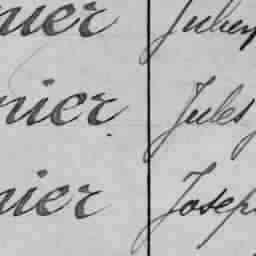 nier Julien
nier Jules
nier Joseph